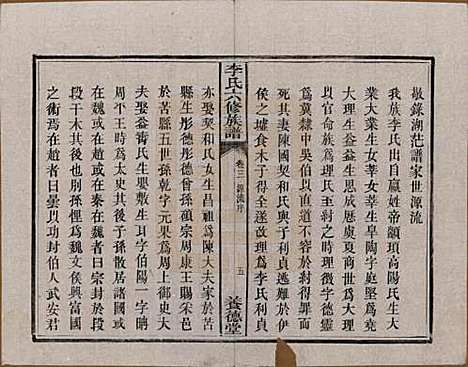 敬錄湖茫譜家世源流
我族李氏出自嬴姓帝顓頊高陽氏生大
業大業生女莘女莘生皐字庭堅爲堯
大理生益益生恩成歷虞夏商世爲大理
以官命族爲理氏至紂之時理徵字德靈
爲冀隸中吳伯以直道不容於紂得罪而
死其妻陳國契和氏與子利貞逃難於伊
侯之墟食木子得全遂改理爲李氏利貞
李氏六修族譜
卷三 源流序
五
養德堂
亦娶契和氏女生昌祖爲陳大夫家於苦
縣生彤德彤德曾孫碩宗周康王賜采邑
於苦縣五世孫乾字元果爲周上御史大
夫娶益壽氏生嬰敷生耳字伯陽一字聃
周平王時爲太史其後子孫散居諸國或
在魏或在趙者興於魏封於段
干木其後也別孫悝爲魏文侯興富國
之術焉在趙者曰曇以功封柏人武安君